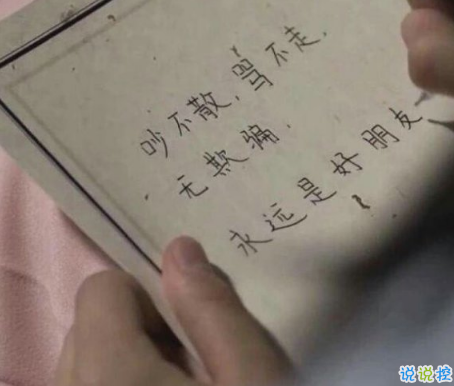 吵不散，骂不走，
无欺骗，
永远是好朋友
说说控